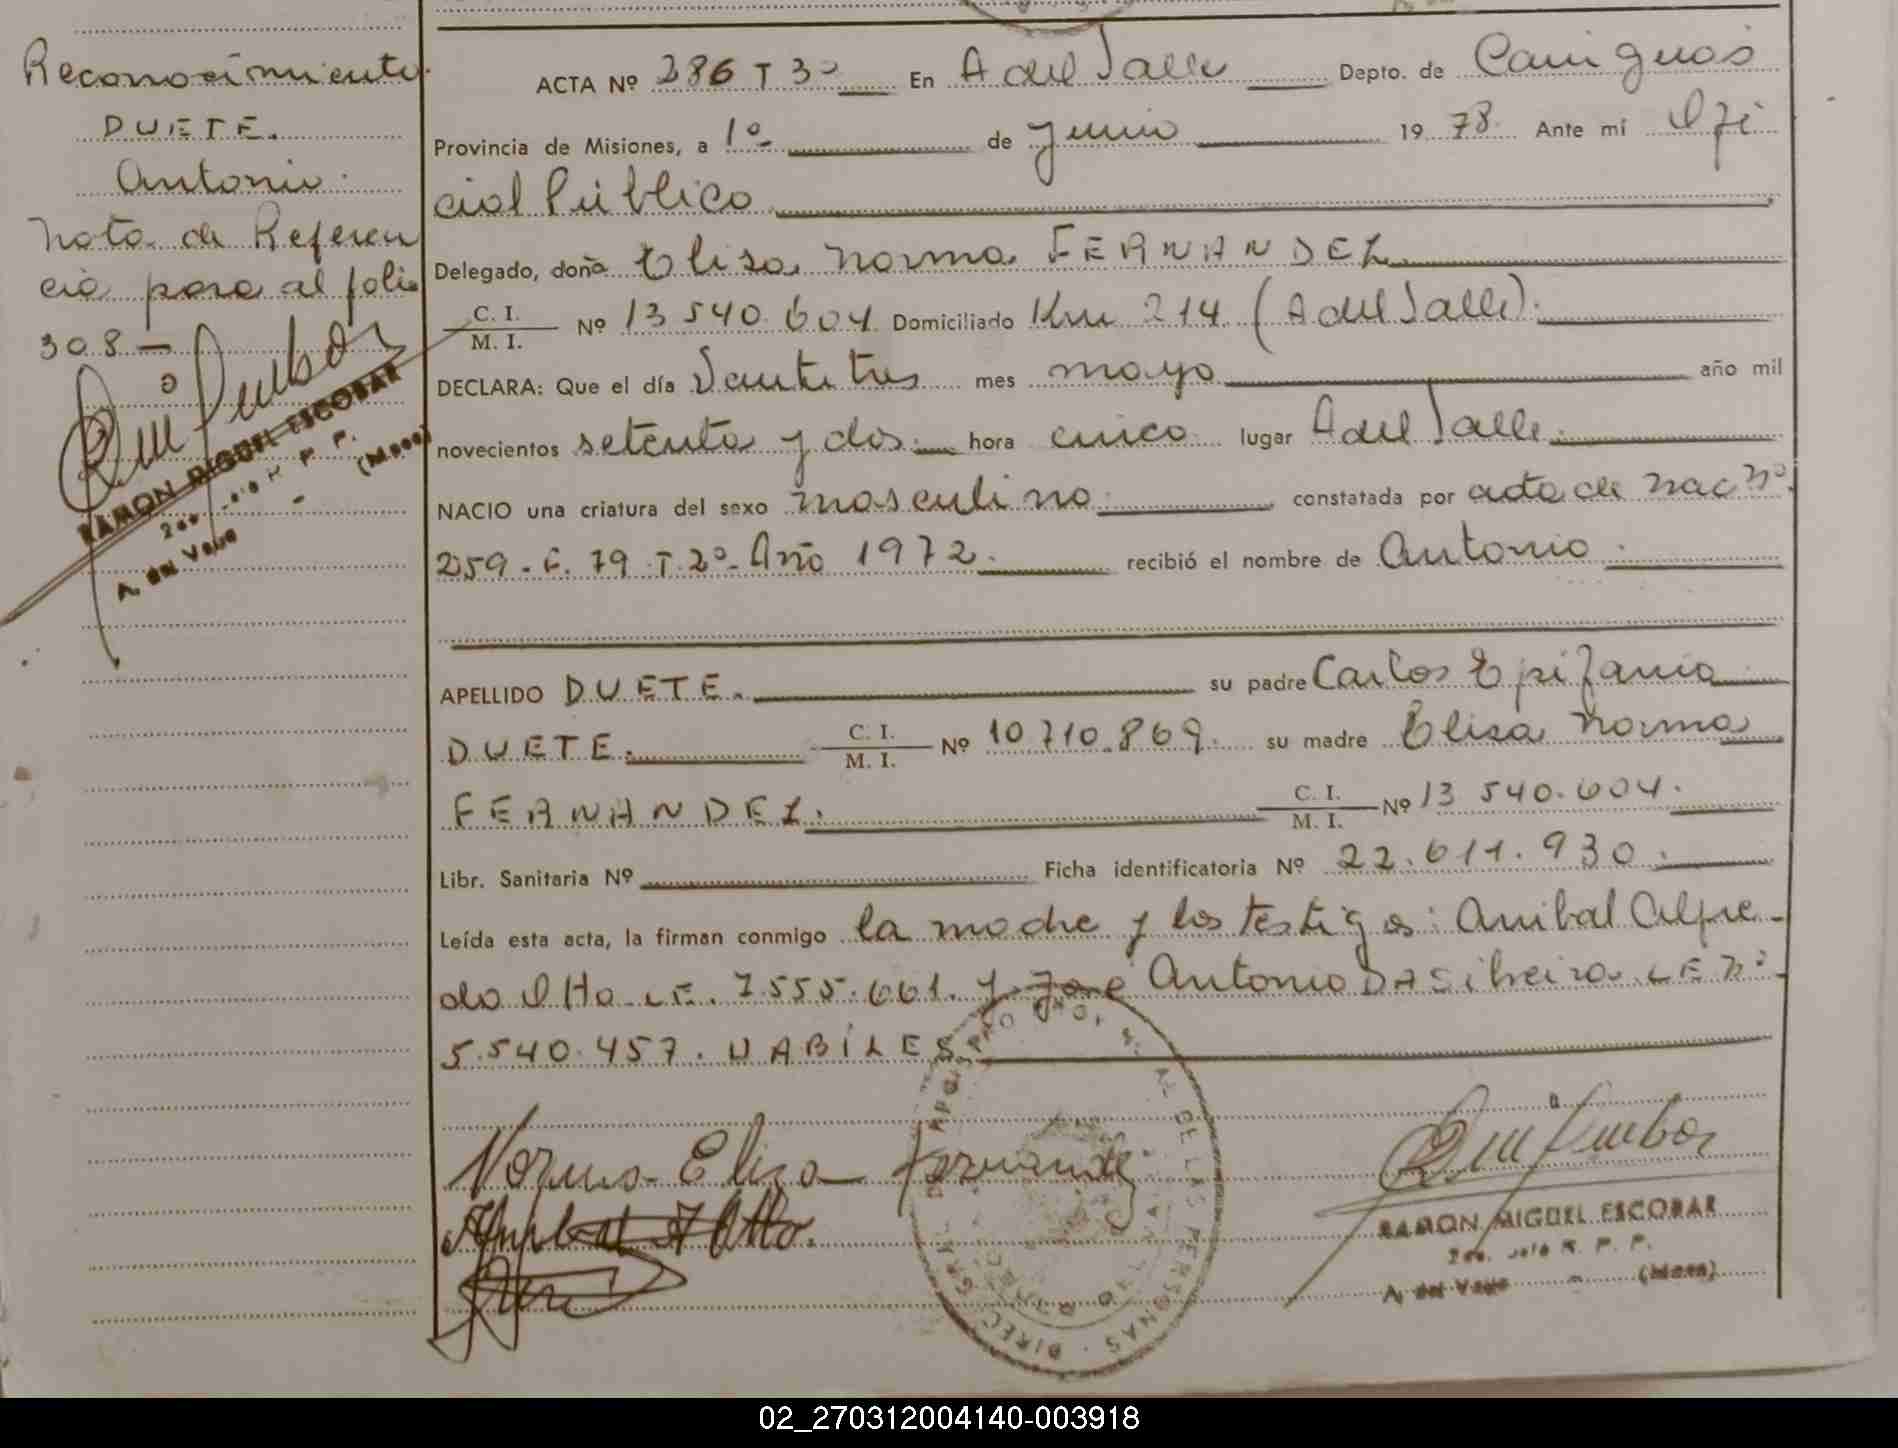 Reconocimiento.
DUETE.
Antonio.
Nota de Referen
cia pasa al folio
308 —
RAMON MIGUEL ESCOBAR
2do. Jefe R. P. P.
A. del Valle - (Mnes)
ACTA Nº 286 T 3º En A del Valle Depto. de Cainguás
Provincia de Misiones, a 1º de junio 1978. Ante mí Ofi
cial Público
Delegado, doña Elisa Norma FERNANDEZ
C. I.
M. I. Nº 13 540.604 Domiciliado Km 214 (A del Valle).
DECLARA: Que el día Veintitres mes mayo año mil
novecientos setenta y dos. hora cinco lugar A del Valle.
NACIO una criatura del sexo masculino. constatada por acta de Nac Nº
259. F. 79. T. 2º. Año 1972. recibió el nombre de Antonio.
APELLIDO DUETE. su padre Carlos Epifanio
DUETE. C. I.
M. I. Nº 10 710.869. su madre Elisa Norma
FERNANDEZ. C. I.
M. I. Nº 13 540.604.
Libr. Sanitaria Nº Ficha identificatoria Nº 22.611.930.
Leída esta acta, la firman conmigo la madre y los testigos: Anibal Alfre-
do Otto LE. 7.555.661. y José Antonio DA Silveira LE Nº
5.540.457. HABILES
Norma Elisa Fernandez
Anibal A Otto.
DE LAS PERSONAS · DIREC. GRAL.
RAMON MIGUEL ESCOBAR
2do. Jefe R. P. P.
A. del Valle - (Mnes)
02_270312004140-003918